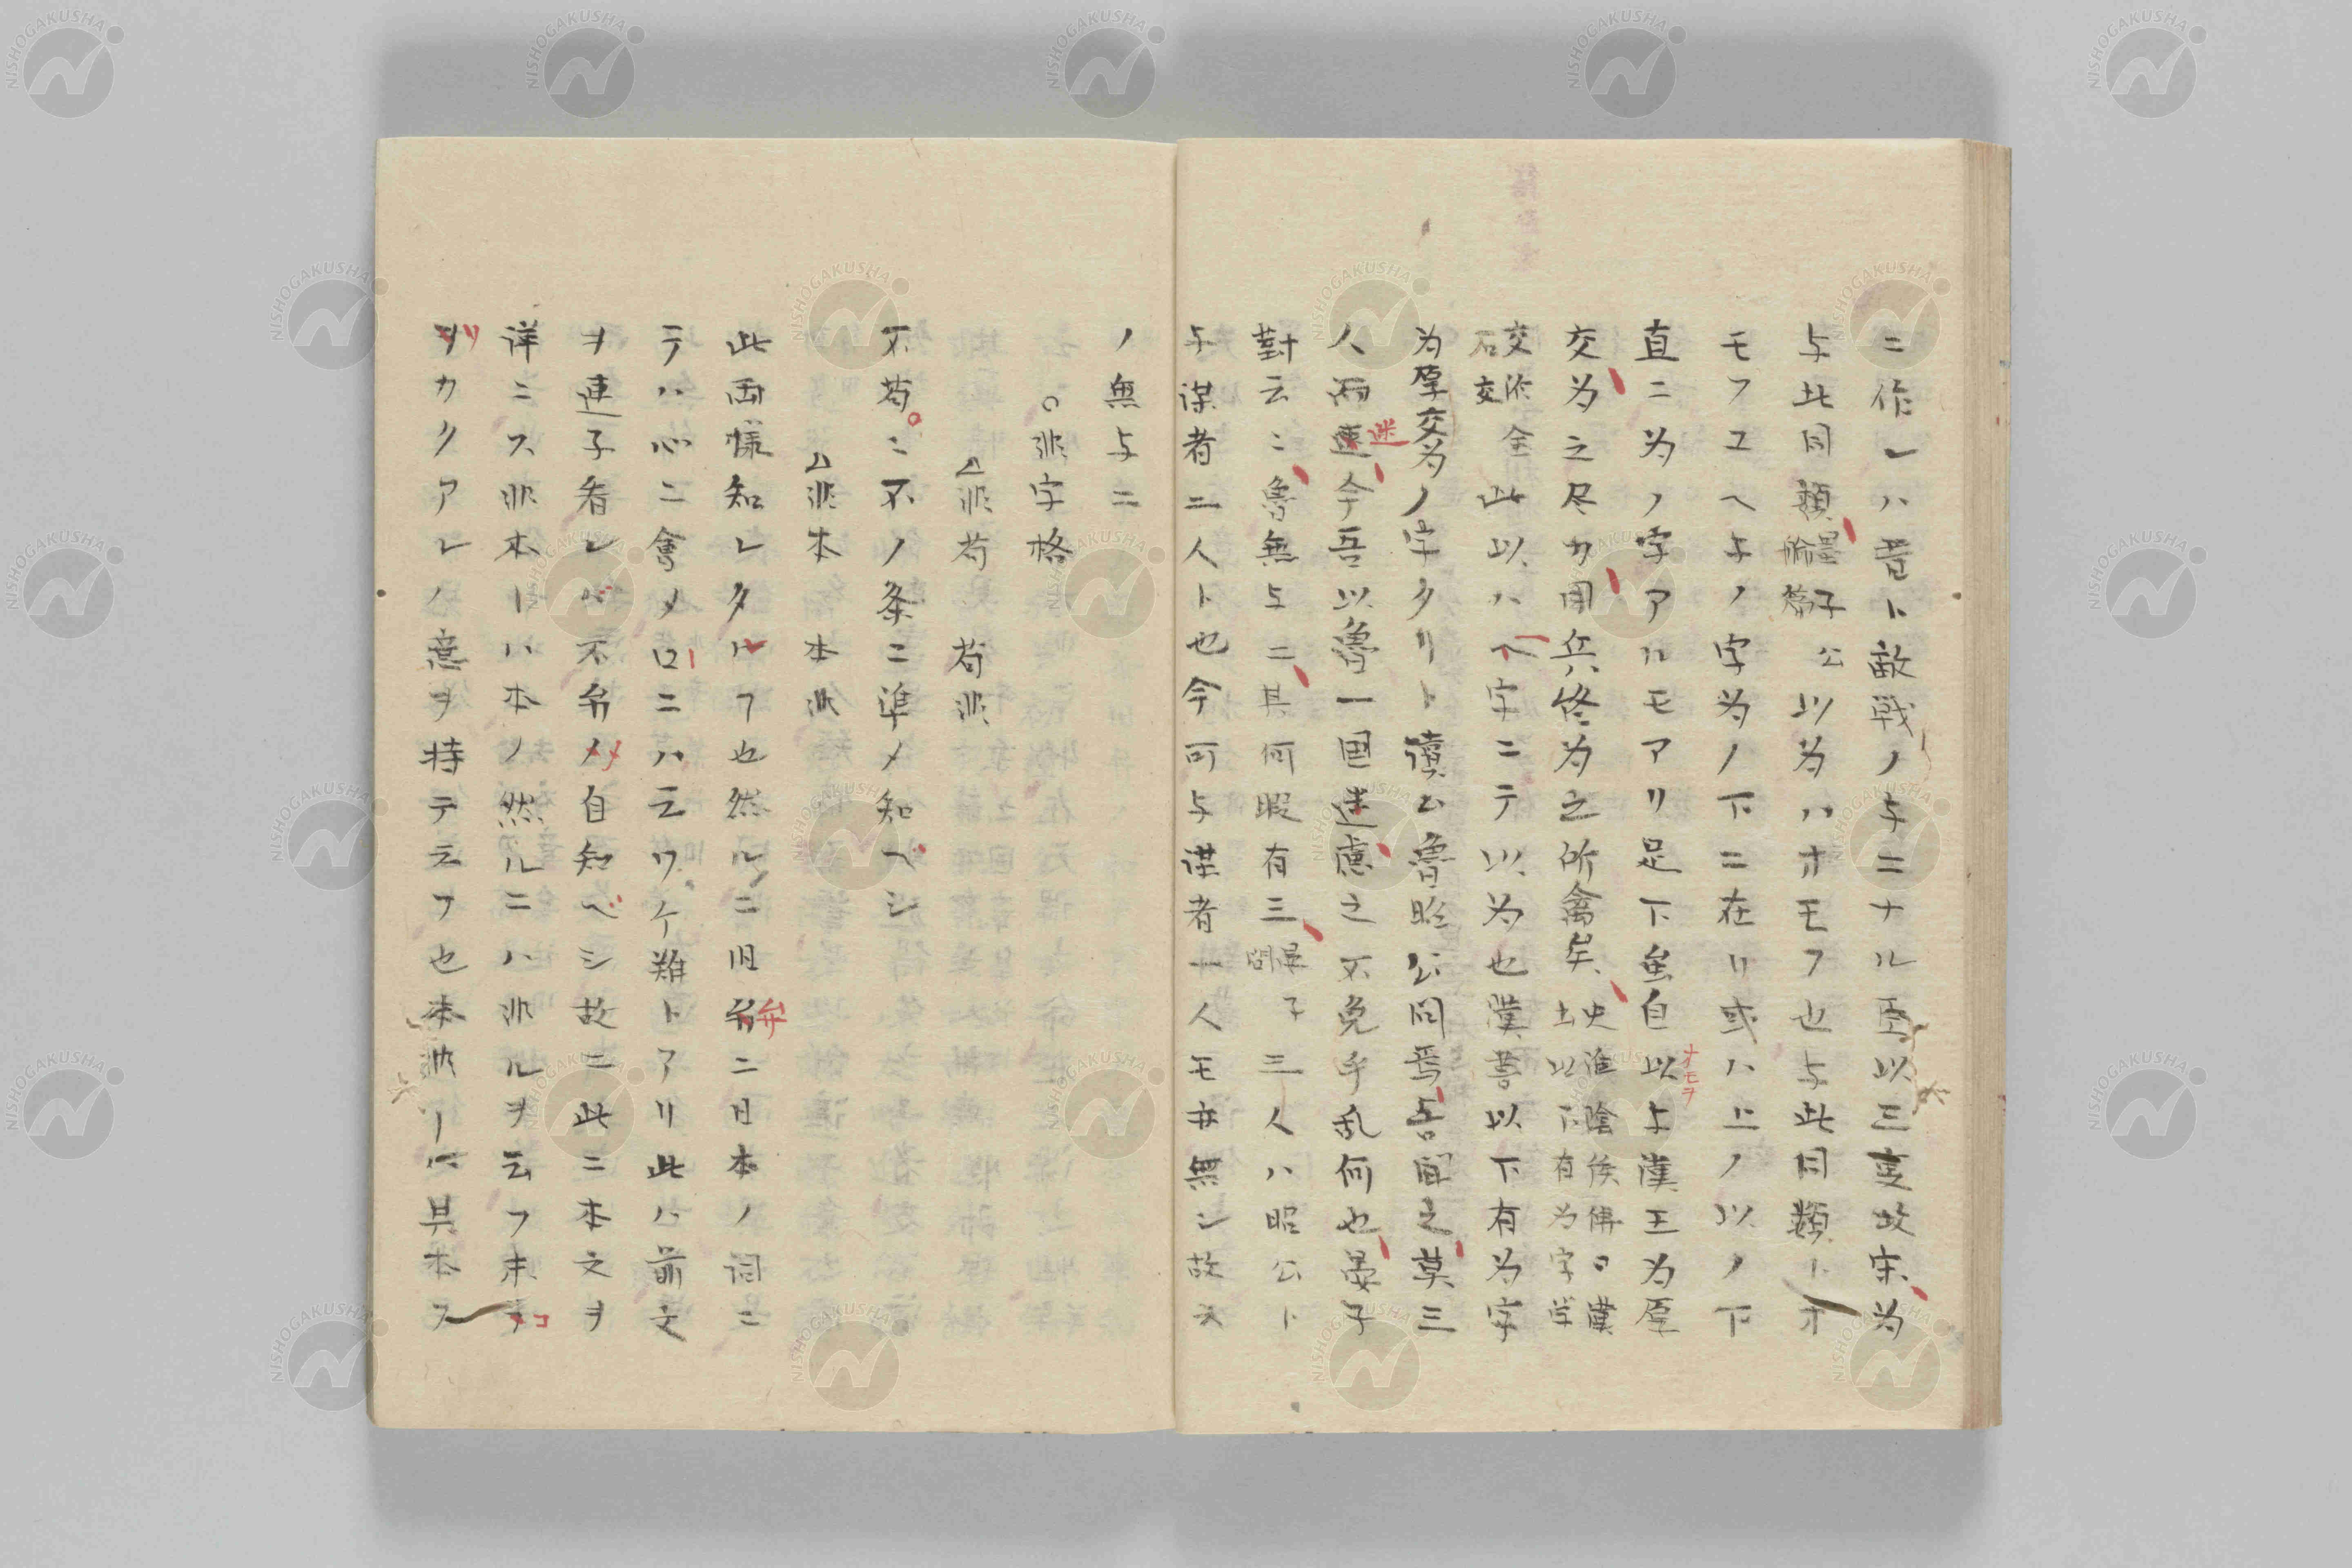 ニ作レハ昔ト敵戦ノ与ニナル臣以三吏故宋為
与此同類墨子公輸篇以為ハオモフ也与此同類トオ
モフユヘ与ノ字為ノ下ニ在リ或ハ上ノ以ノ下
直ニ為ノ字アルモアリ足下虽自以オモヲ与漢王為厚
交為之尽力用兵終為之所禽矣史淮陰侯傳曰漢土以下有為字
交作金石交此以ハ下字ニテ以為也漢書以下有為字
為厚交為ノ字タリト云魯昭公問焉吾聞之莫三
人而迷今吾以魯一国迷慮之不免乎乱何也晏子
對云ニ魯無与二其何暇有三晏子問三人ハ昭公ト
与謀者二人ト也今可与謀者一人モ亦無シ故ス
ノ無与二
○非字格
△非苟 苟非
不苟ニ不ノ条ニ準メ知ベシ
△非本 本非
此両様知レタルフ也然ルニ旧弁ニ日本ノ詞ニ
テハ心ニ會メ口ニハ云ワケ難トアリ此ハ前文
ヲ連子看レバ不弁メ自知ベシ故ニ此ニ本文ヲ
詳ニス非本ーハ本ノ然ルニハ非ルヲ云フ末コ
ヲカクアレノ意ヲ持テ云フ也本非ーハ其本ス